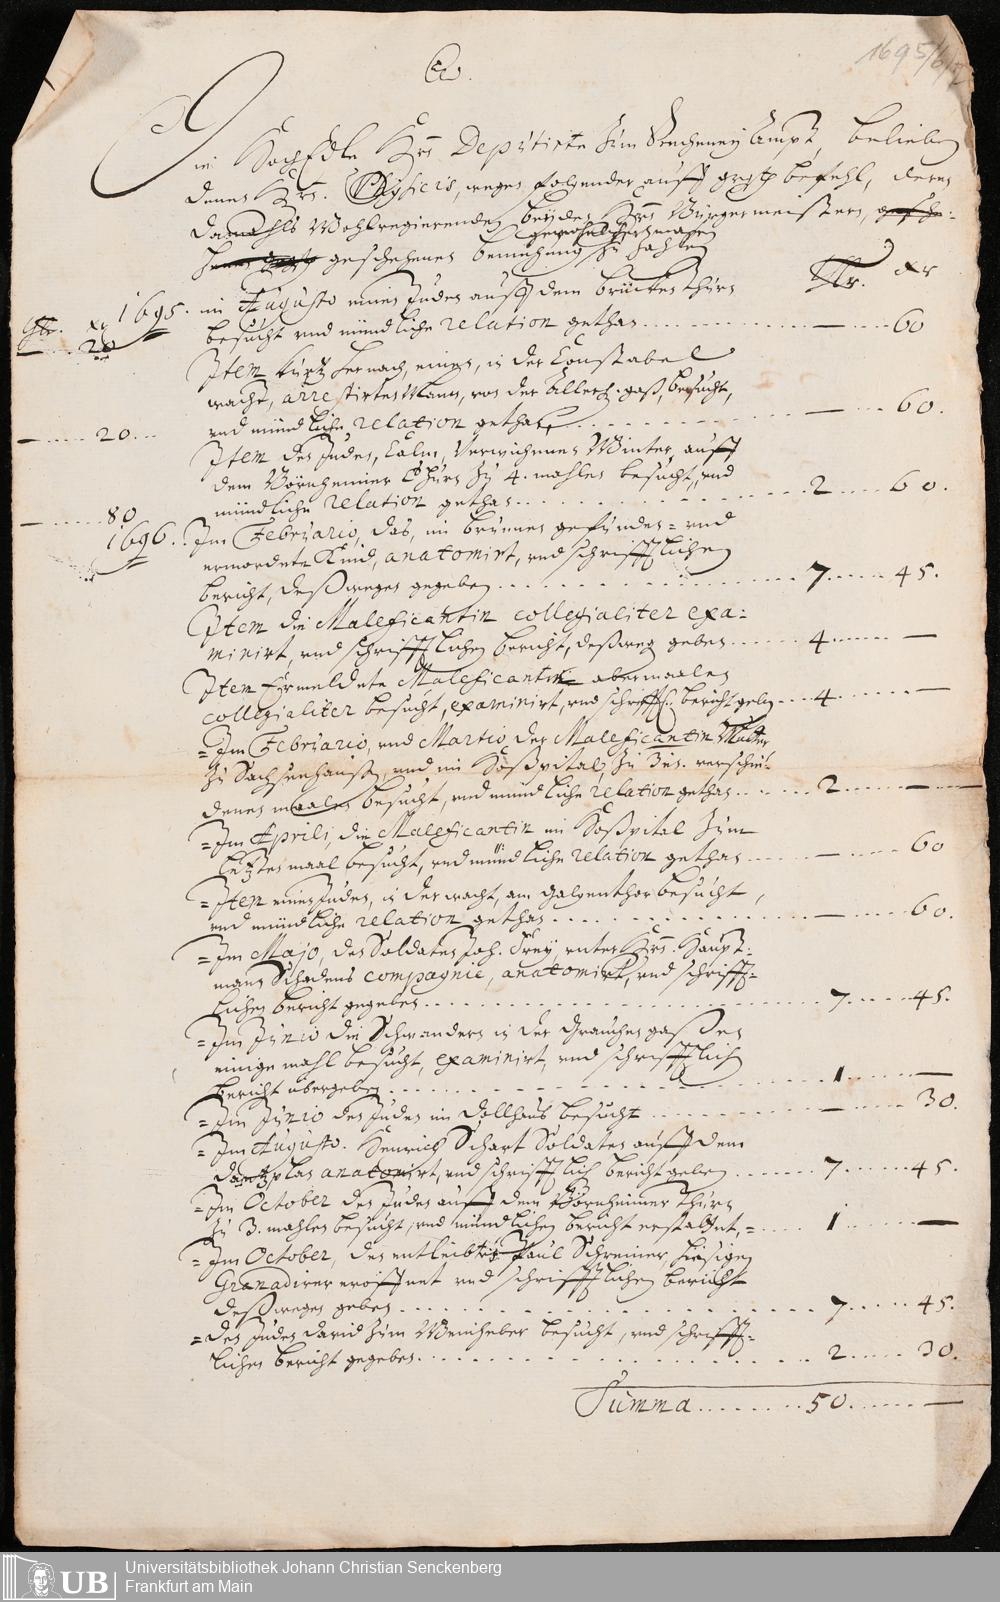 1695/6/7
Die HochEdle Hrn Deputirte zum Recheney Ampt, belieben
denen Hrn. Physicis, wegen folgender auff befehl, deren
damahls Wohlregierenden beyden Hrn Bürgermeistern,
gewohnter maßen
geschehenen bemühung zu zahlen
fl. xr
fl. xr
1695. im Augusto einen Juden auff dem brücken Thurn
20
besucht und mündliche relation gethan.......... — ..... 60
Item kurtz hernach, einen, in der Constabel
wacht, arrestirten Mann, von der Allerh. gaß, besucht,
— ...... 20...
und mündliche relation gethan, .......... — ..... 60.
Item den Juden, Calm, verwichenen Winter, auff
dem Börnheimer Thurn zu 4. mahlen besucht, und
— ...... 80
mündliche relation gethan .......... 2 ..... 60.
1696. Im Februario, das, im brunnen gefunden= und
ermordete Kind, anatomirt, und schrifftlichen
bericht, deßwegen gegeben .......... 7 ..... 45.
Item die Maleficantin collegialiter exa-
minirt, und schrifftlichen bericht, deßweg geben ...... 4 ...... —
Item Ermeldete Maleficantin abermaalen
collegialiter besucht, examinirt, und schrifftl. bericht geben ... 4 ...... —
= Im Februario, und Martio der Maleficantin Mutter
zu Sachsenhaußen, und im Hoßpital, zu verschie-
denen maalen besucht, und mündliche relation gethan ...... 2 ...... —
= Im Aprili, die Maleficantin im Hoßpital zum
letzten maal besucht, und mündliche relation gethan ...... — ..... 60
= Item einen Juden, in der wacht, am Galgenthor besucht,
und mündliche relation gethan .......... — ..... 60.
= Im Majo, den Soldaten Joh. Frey, unter Hrn. Haupt-
mann Schadens compagnie, anatomirt, und schrifft-
lichen bericht gegeben .......... 7 ..... 45.
= Im Junio die Schwangere in der Grauchengaßen
einige mahl besucht, examinirt, und schrifftlich
bericht übergeben .......... 1 ...... —
= Im Junio den Juden im Dollhaus besucht .......... — ..... 30.
= Im Augusto. Henrich Schart Soldaten auff dem
anatomirt, und schrifftlich bericht geben ...... 7 ..... 45.
= Im October den Juden auff dem Börnheimer Thurn
zu 3. mahlen besucht, und mündlichen bericht erstattet, = 1 ...... —
= Im October, den entleibten Paul Schreiner, hiesigen
Granadirer eröffnet und schrifftlichen bericht
deßwegen geben .......... 7 ..... 45.
= den Juden David zum Weinheber besucht, und schrifft-
lichen bericht gegeben .......... 2 ..... 30.
Summa ........ 50 ...... —
UB
Universitätsbibliothek Johann Christian Senckenberg
Frankfurt am Main